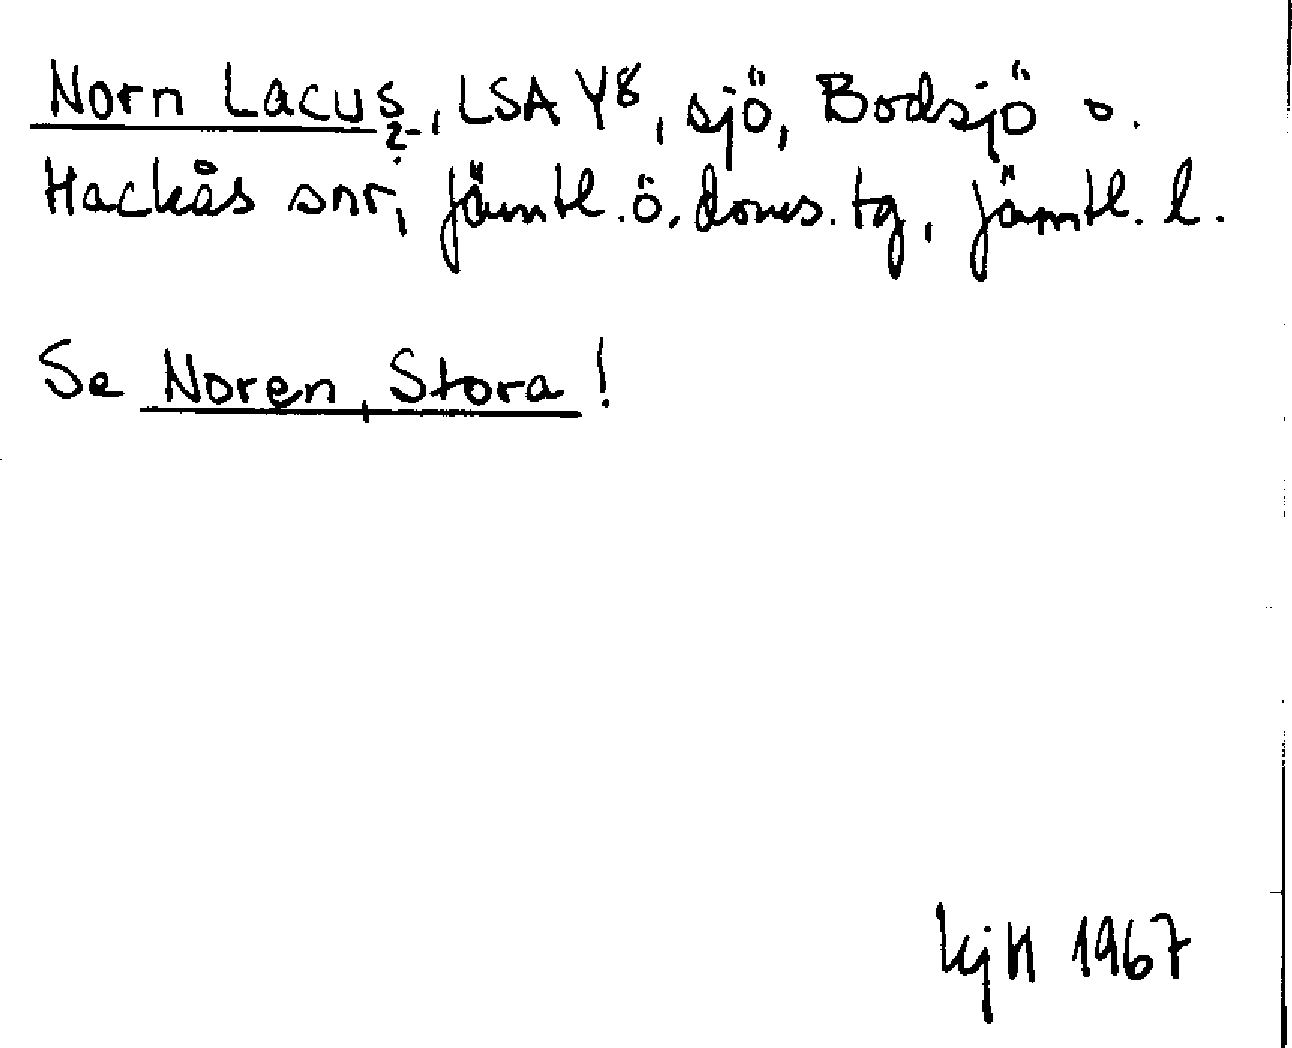 Norn Lacus, LSA Y8, sjö, Bodsjö o.
Hackås snr, Jämtl. ö. doms. tg, Jämtl. l.
Se Noren, Stora!
KjH 1967